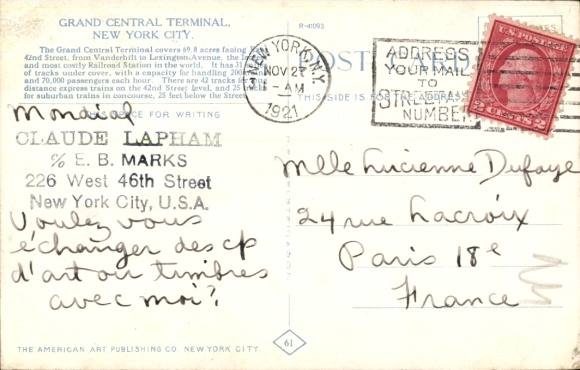 GRAND CENTRAL TERMINAL,
NEW YORK CITY.
R-41093
The Grand Central Terminal covers 69.8 acres facing
42nd Street, from Vanderbilt to Lexington Avenue, the
and most costly Railroad Station in the world. It has 31
of tracks under cover, with a capacity for handling 200
and 70,000 passengers each hour. There are 42 tracks for
distance express trains on the 42nd Street Level, and 25
for suburban trains in concourse, 25 feet below the Street
POST CARD
THIS SPACE FOR WRITING
THIS SIDE IS FOR ADDRESS
NEW YORK, N.Y.
NOV 27
-AM
1921
ADDRESS
YOUR MAIL
TO
STREET AND
NUMBER
U.S. POSTAGE
2 CENTS 2
CLAUDE LAPHAM
% E. B. MARKS
226 West 46th Street
New York City, U.S.A.
Voulez vous
échanger des cp
d'art ou timbres
avec moi?
Mlle Lucienne Dufaye
24 rue Lacroix
Paris 18e
France
THE AMERICAN ART PUBLISHING CO. NEW YORK CITY.
61